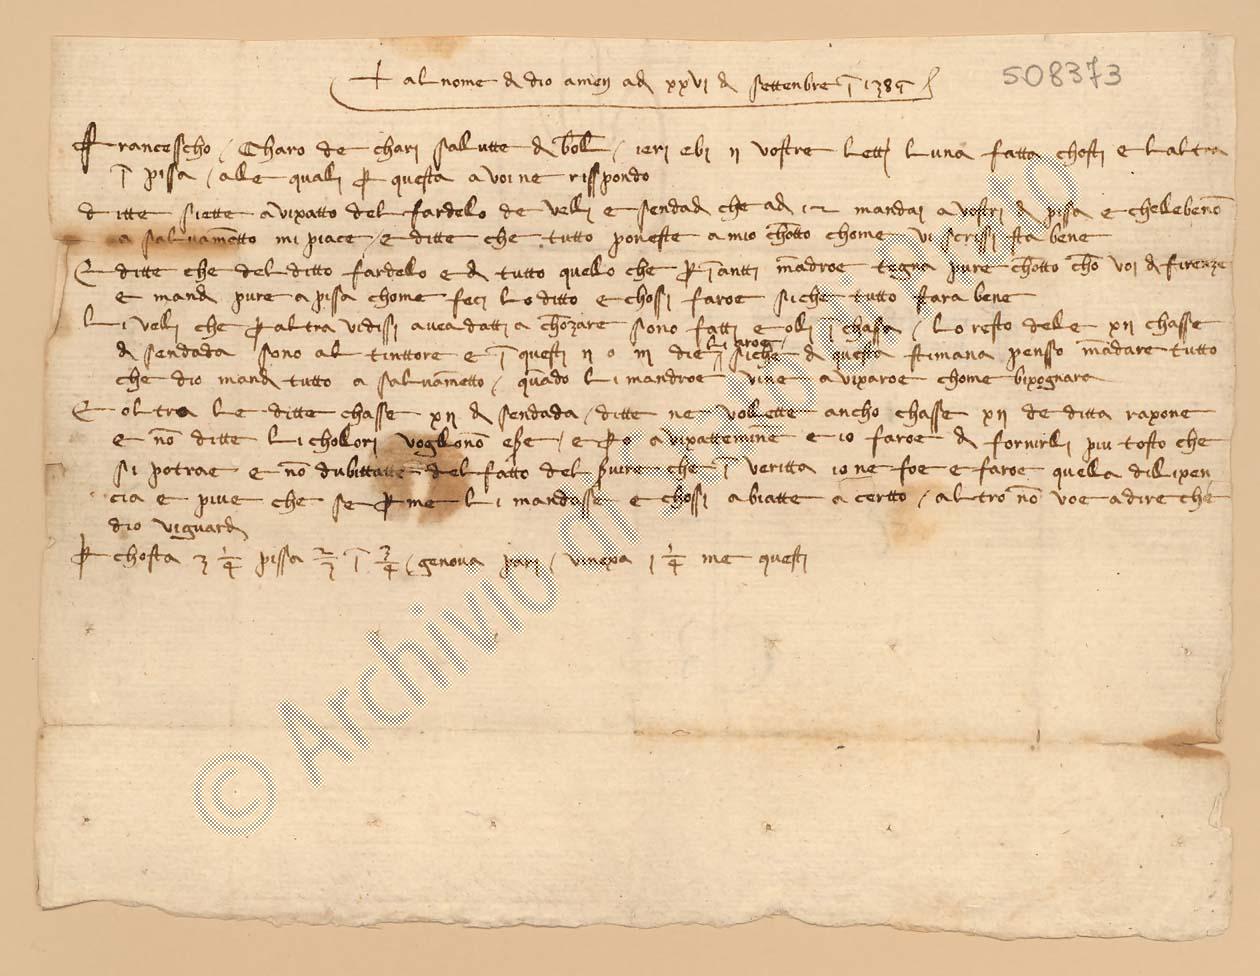 + al nome d dio amen ad xxvi d settenbre 1389
508373
Francesscho Charo de chari sallutte d boll ieri ebi ii vostre lett luna fatta chosti e laltra
pissa alle quali p questa a voi ne risspondo
ditte siette avixatto del fardelo de velli e sendad che ad 12 mandai a vostri d pisa e chellebeno
a salvametto mi piace e ditte che tutto poneste a mio chotto chome vi scrissi sta bene
E ditte che del ditto fardello e d tutto quello che madroe tegna pure chotto cho voi d firenze
e mand pure a pissa chome feci lo ditto e chossi faroe siche tutto stara bene
Li velli che p altra vidissi avea datti a chozare sono fatti e olli i chassa lo resto delle xii chasse
d sendada sono al tinttore e i questi ii o iii die li aroe siche d questa stimana pensso madare tutto
che dio mand tutto a salvametto quado li mandroe vine avixaroe chome bixognara
E oltra le ditte chasse xii d sendada ditte ne vollette ancho chasse xii de ditta raxone
e no ditte li chollori vogliono ese e po avixattemine e io faroe d fornirlli piu tosto che
si potrae e no dubittatte del fatto del che i veritta io ne foe e faroe quella dillixen
cia e piue che se p me li mandasse e chossi abiatte a certto altro no voe a dire che
dio viguard
P chosta 3 1/4 pissa 2/3 i 3/4 genova pari vinexa 1 1/4 me questi
© Archivio di Stato di Prato